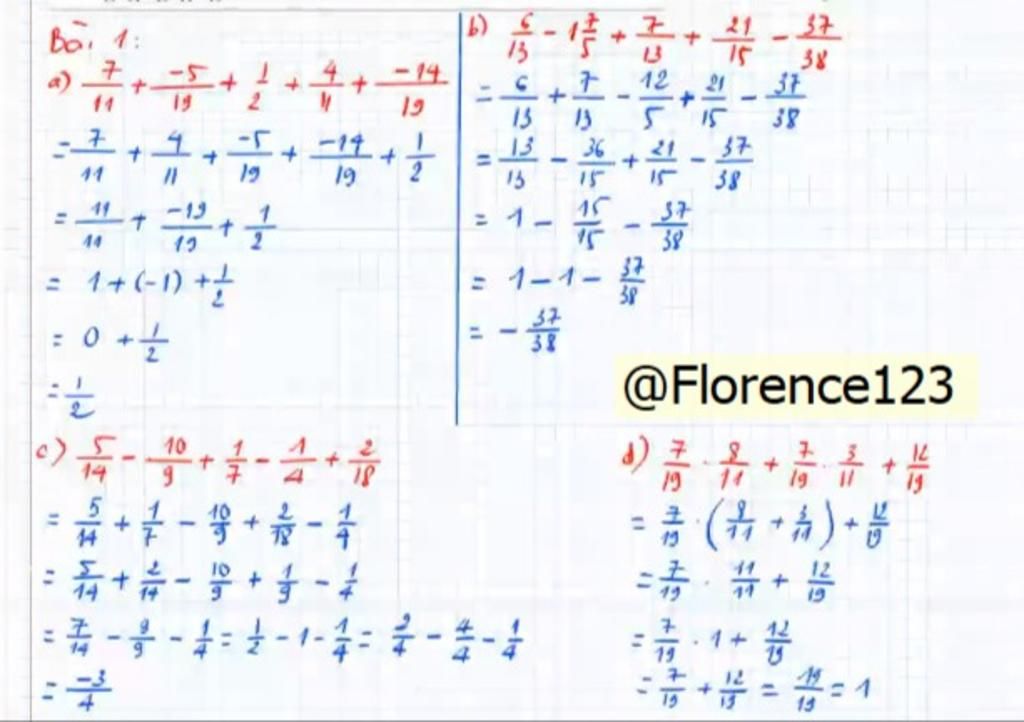 Bài 1:
a) 7/11 + -5/19 + 1/2 + 4/11 + -14/19
= 7/11 + 4/11 + -5/19 + -14/19 + 1/2
= 11/11 + -19/19 + 1/2
= 1 + (-1) + 1/2
= 0 + 1/2
= 1/2
b) 6/13 - 1 7/5 + 7/13 + 21/15 - 37/38
= 6/13 + 7/13 - 12/5 + 21/15 - 37/38
= 13/13 - 36/15 + 21/15 - 37/38
= 1 - 15/15 - 37/38
= 1 - 1 - 37/38
= - 37/38
@Florence123
c) 5/14 - 10/9 + 1/7 - 1/4 + 2/18
= 5/14 + 1/7 - 10/9 + 2/18 - 1/4
= 5/14 + 2/14 - 10/9 + 1/9 - 1/4
= 7/14 - 9/9 - 1/4 = 1/2 - 1 - 1/4 = 2/4 - 4/4 - 1/4
= -3/4
d) 7/19 . 8/11 + 7/19 . 3/11 + 12/19
= 7/19 . (8/11 + 3/11) + 12/19
= 7/19 . 11/11 + 12/19
= 7/19 . 1 + 12/19
= 7/19 + 12/19 = 19/19 = 1